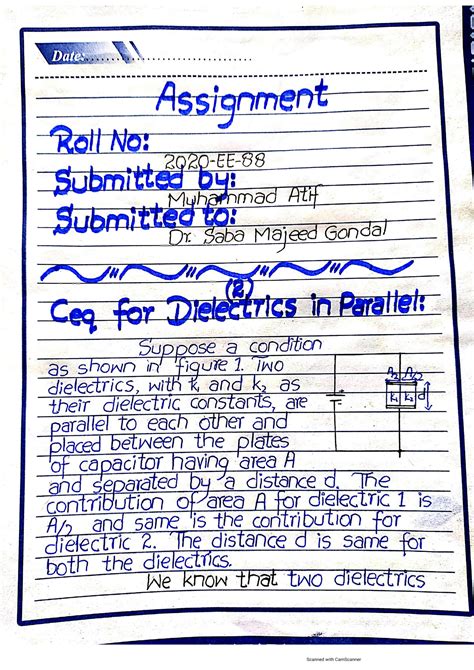 Date:
Assignment
Roll No:
2020-EE-88
Submitted by:
Muhammad Atif
Submitted to:
Dr. Saba Majeed Gondal
(2)
Ceq for Dielectrics in Parallel:
Suppose a condition
as shown in figure 1. Two
dielectrics, with k₁ and k₂ as
their dielectric constants, are
parallel to each other and
placed between the plates
of capacitor having area A
and separated by a distance d. The
contribution of area A for dielectric 1 is
A/2 and same is the contribution for
dielectric 2. The distance d is same for
both the dielectrics.
We know that two dielectrics
A/2 A/2
K₁ K₂ d
Scanned with CamScanner